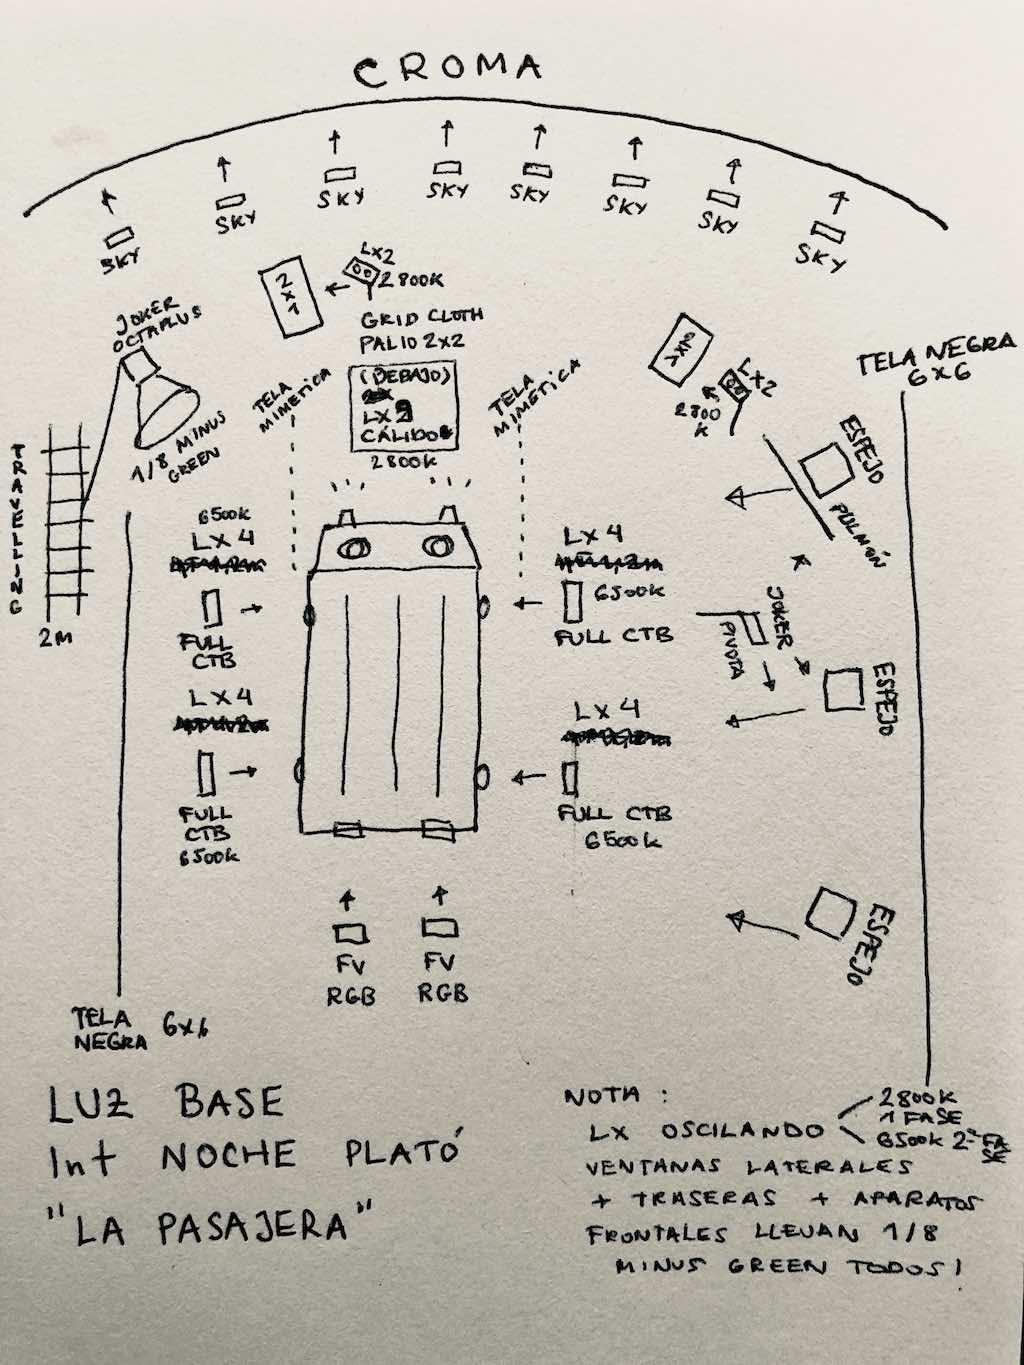 CROMA
SKY
SKY
SKY
SKY
SKY
SKY
SKY
SKY
LX2
2800K
2x1
GRID CLOTH
PALIO 2x2
JOKER
OCTAPLUS
1/8 MINUS
GREEN
TELA
MIMÉTICA
(DEBAJO)
LX2
CÁLIDO
2800K
TELA
MIMÉTICA
2x1
LX2
2800
K
TELA NEGRA
6x6
ESPEJO
PULMÓN
TRAVELLING
2M
6500K
LX4
FULL
CTB
LX4
FULL
CTB
6500K
LX4
6500K
FULL CTB
LX4
FULL CTB
6500K
JOKER
PIVOTA
ESPEJO
ESPEJO
FV
RGB
FV
RGB
TELA
NEGRA 6x6
LUZ BASE
Int NOCHE PLATÓ
"LA PASAJERA"
NOTA:
LX OSCILANDO
2800K
1 FASE
6500K 2ª FA
SE
VENTANAS LATERALES
+ TRASERAS + APARATOS
FRONTALES LLEVAN 1/8
MINUS GREEN TODOS!